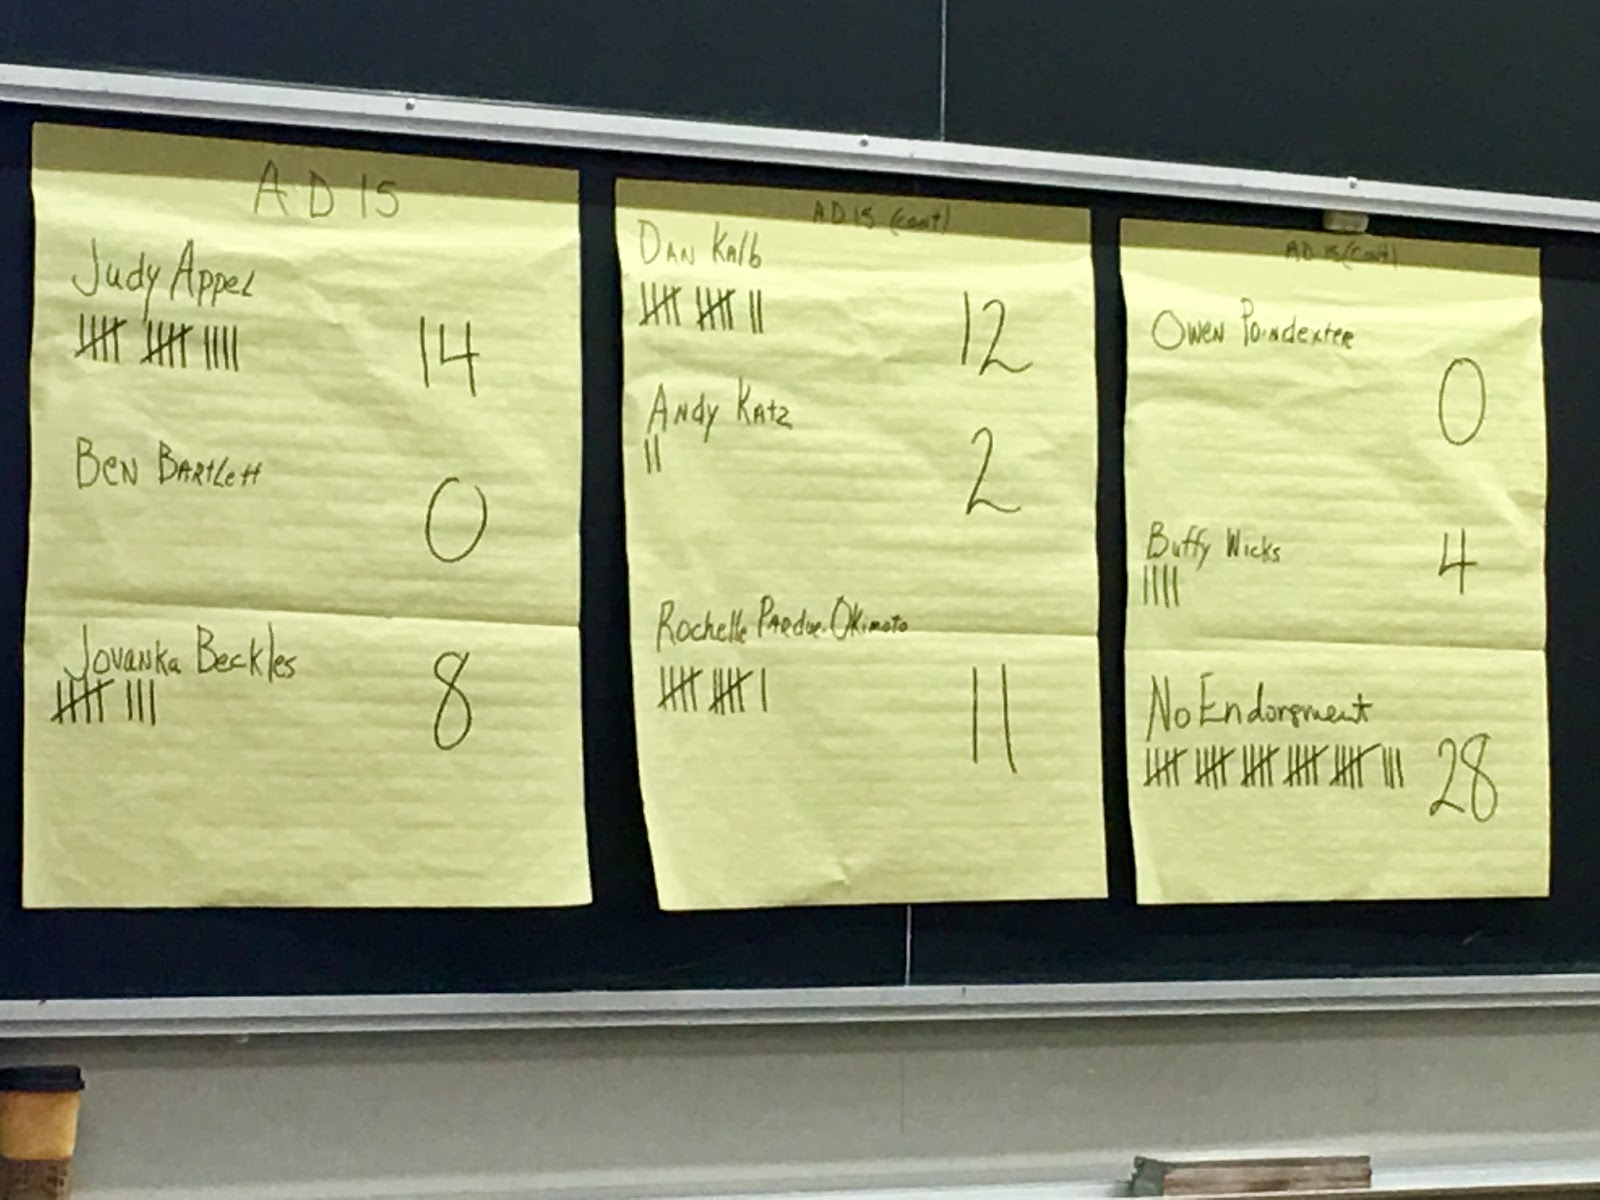 AD 15
Judy Appel
14
Ben Bartlett
0
Jovanka Beckles
8
AD 15 (cont)
Dan Kalb
12
Andy Katz
2
Rochelle Pardue-Okimoto
11
AD 15 (cont)
Owen Poindexter
0
Buffy Wicks
4
No Endorsment
28